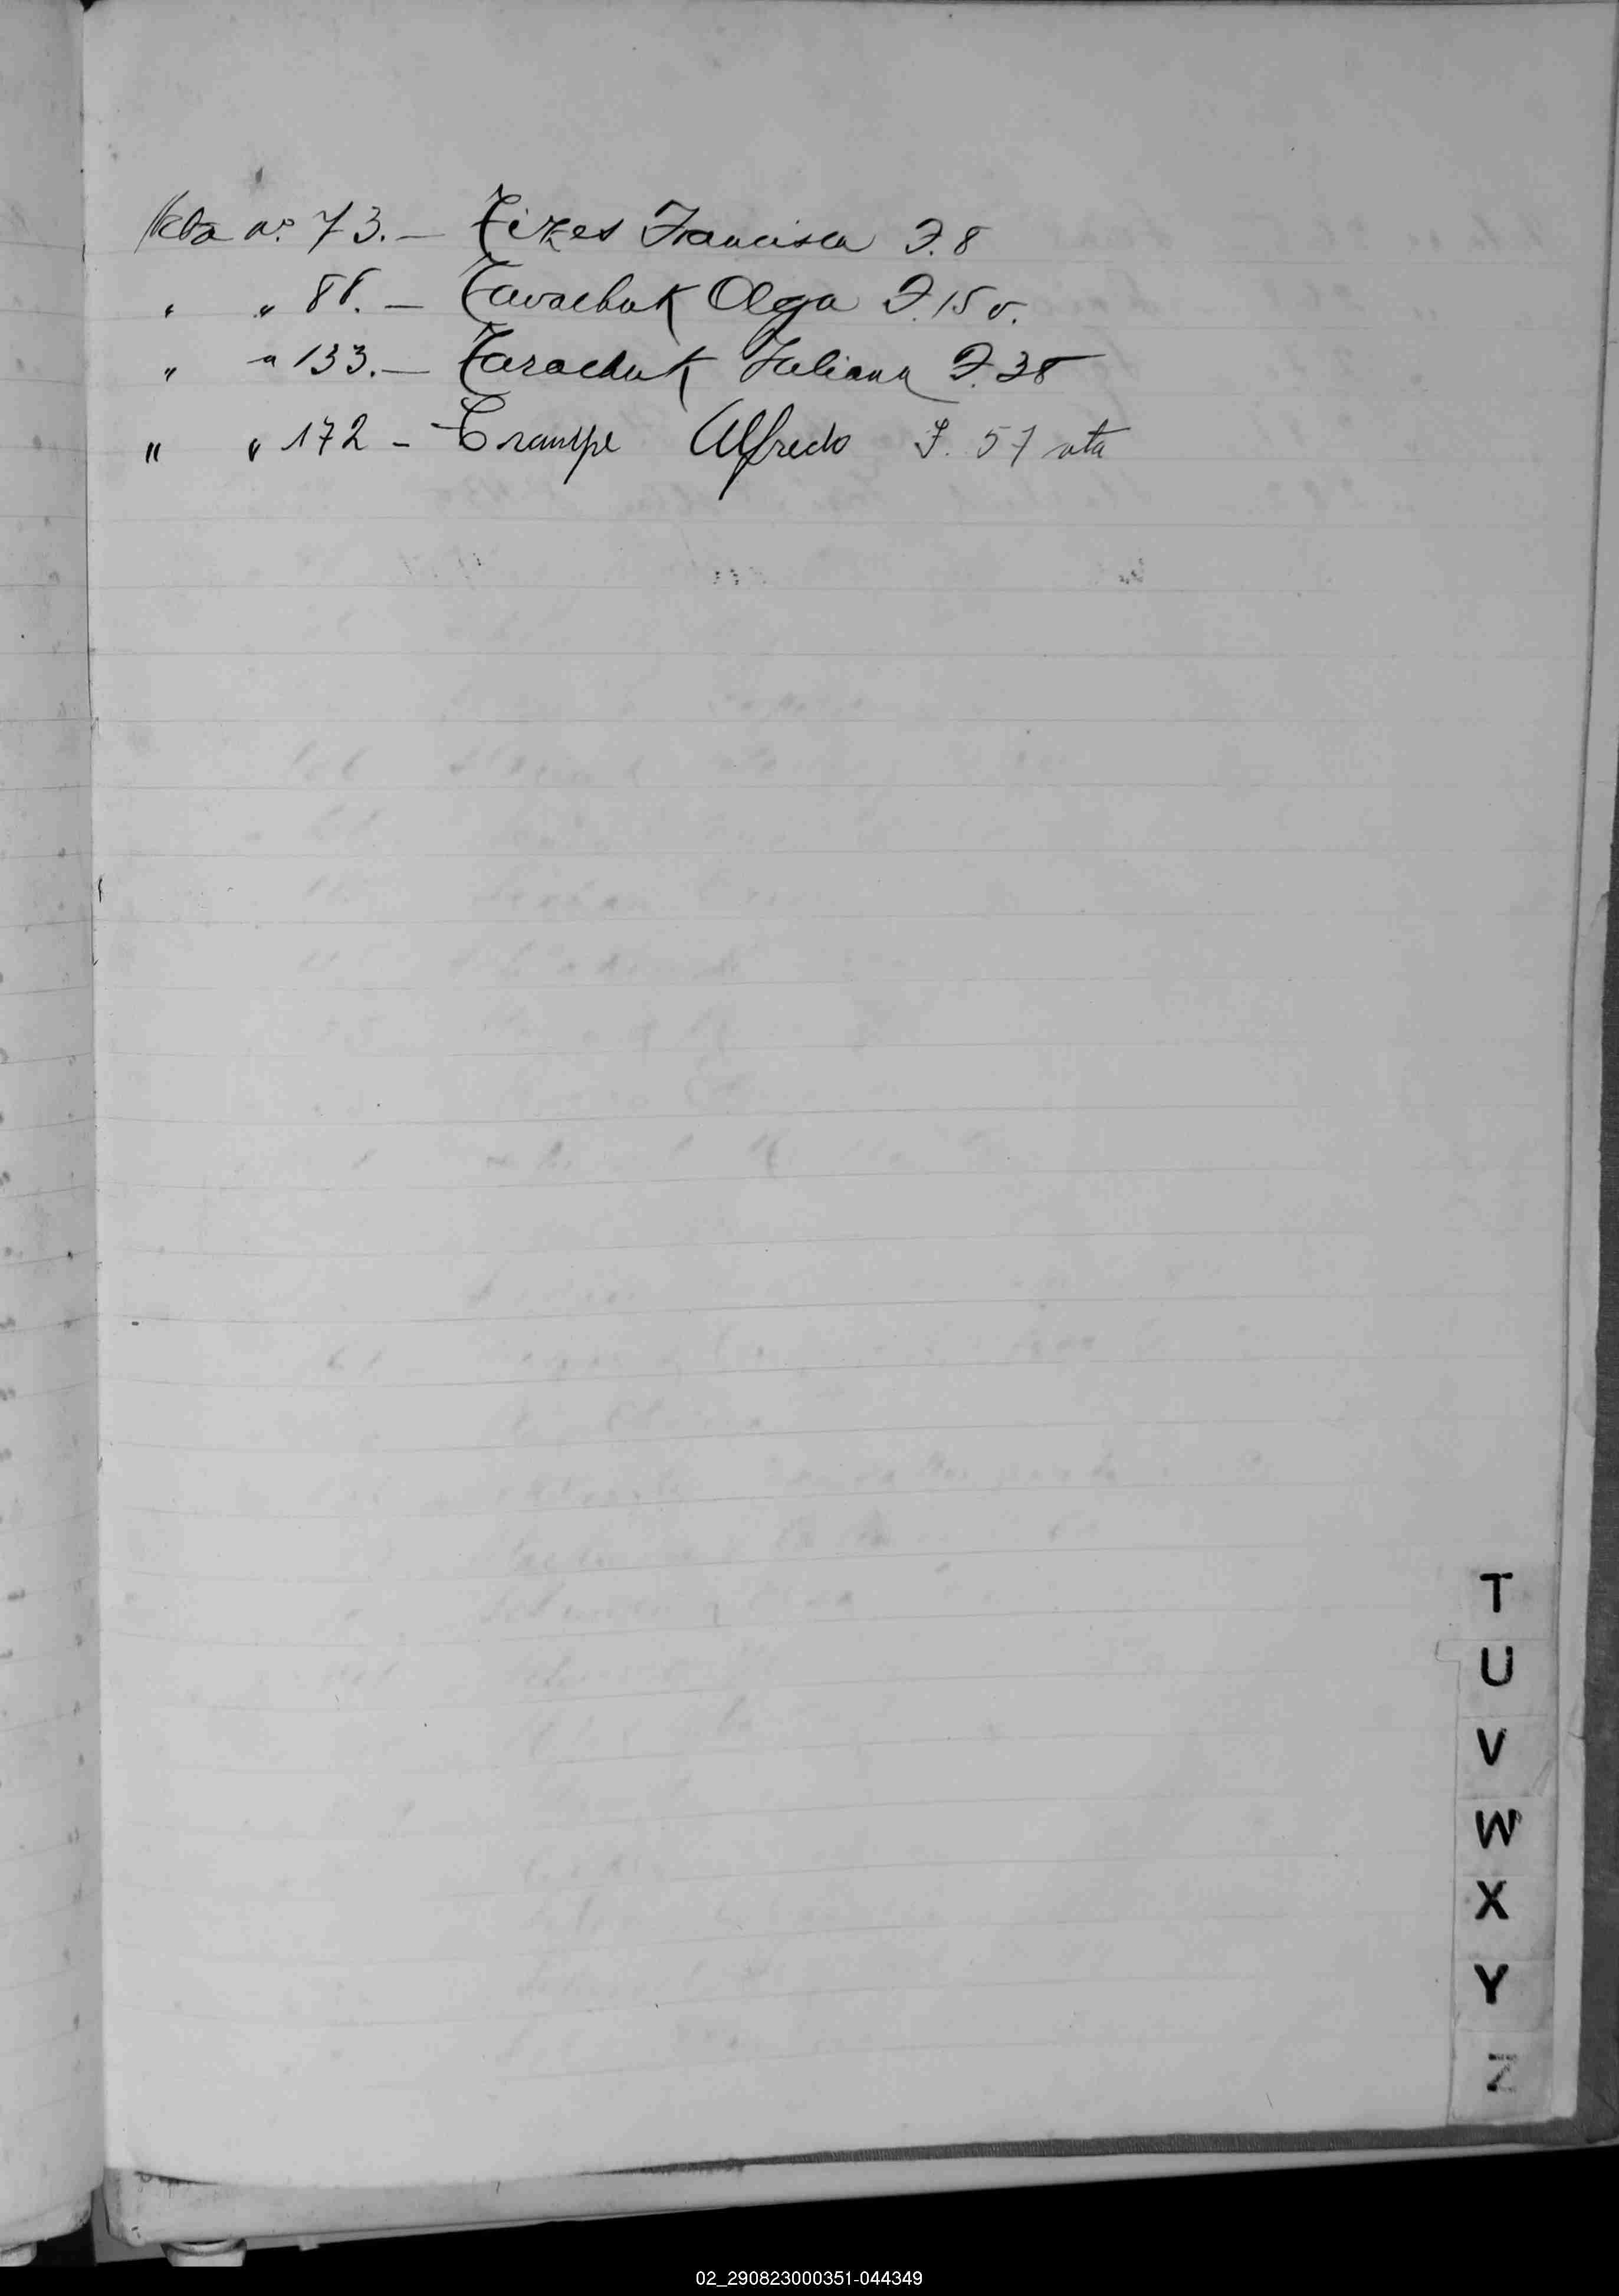 Acta nº 73.— Tizes Francisca F. 8
" " 88.— Tarachuk Olga F. 15 v.
" " 133.— Tarachuk Juliana F. 38
" " 172 - Trampe Alfredo F. 57 vta
T
U
V
W
X
Y
Z
02_290823000351-044349